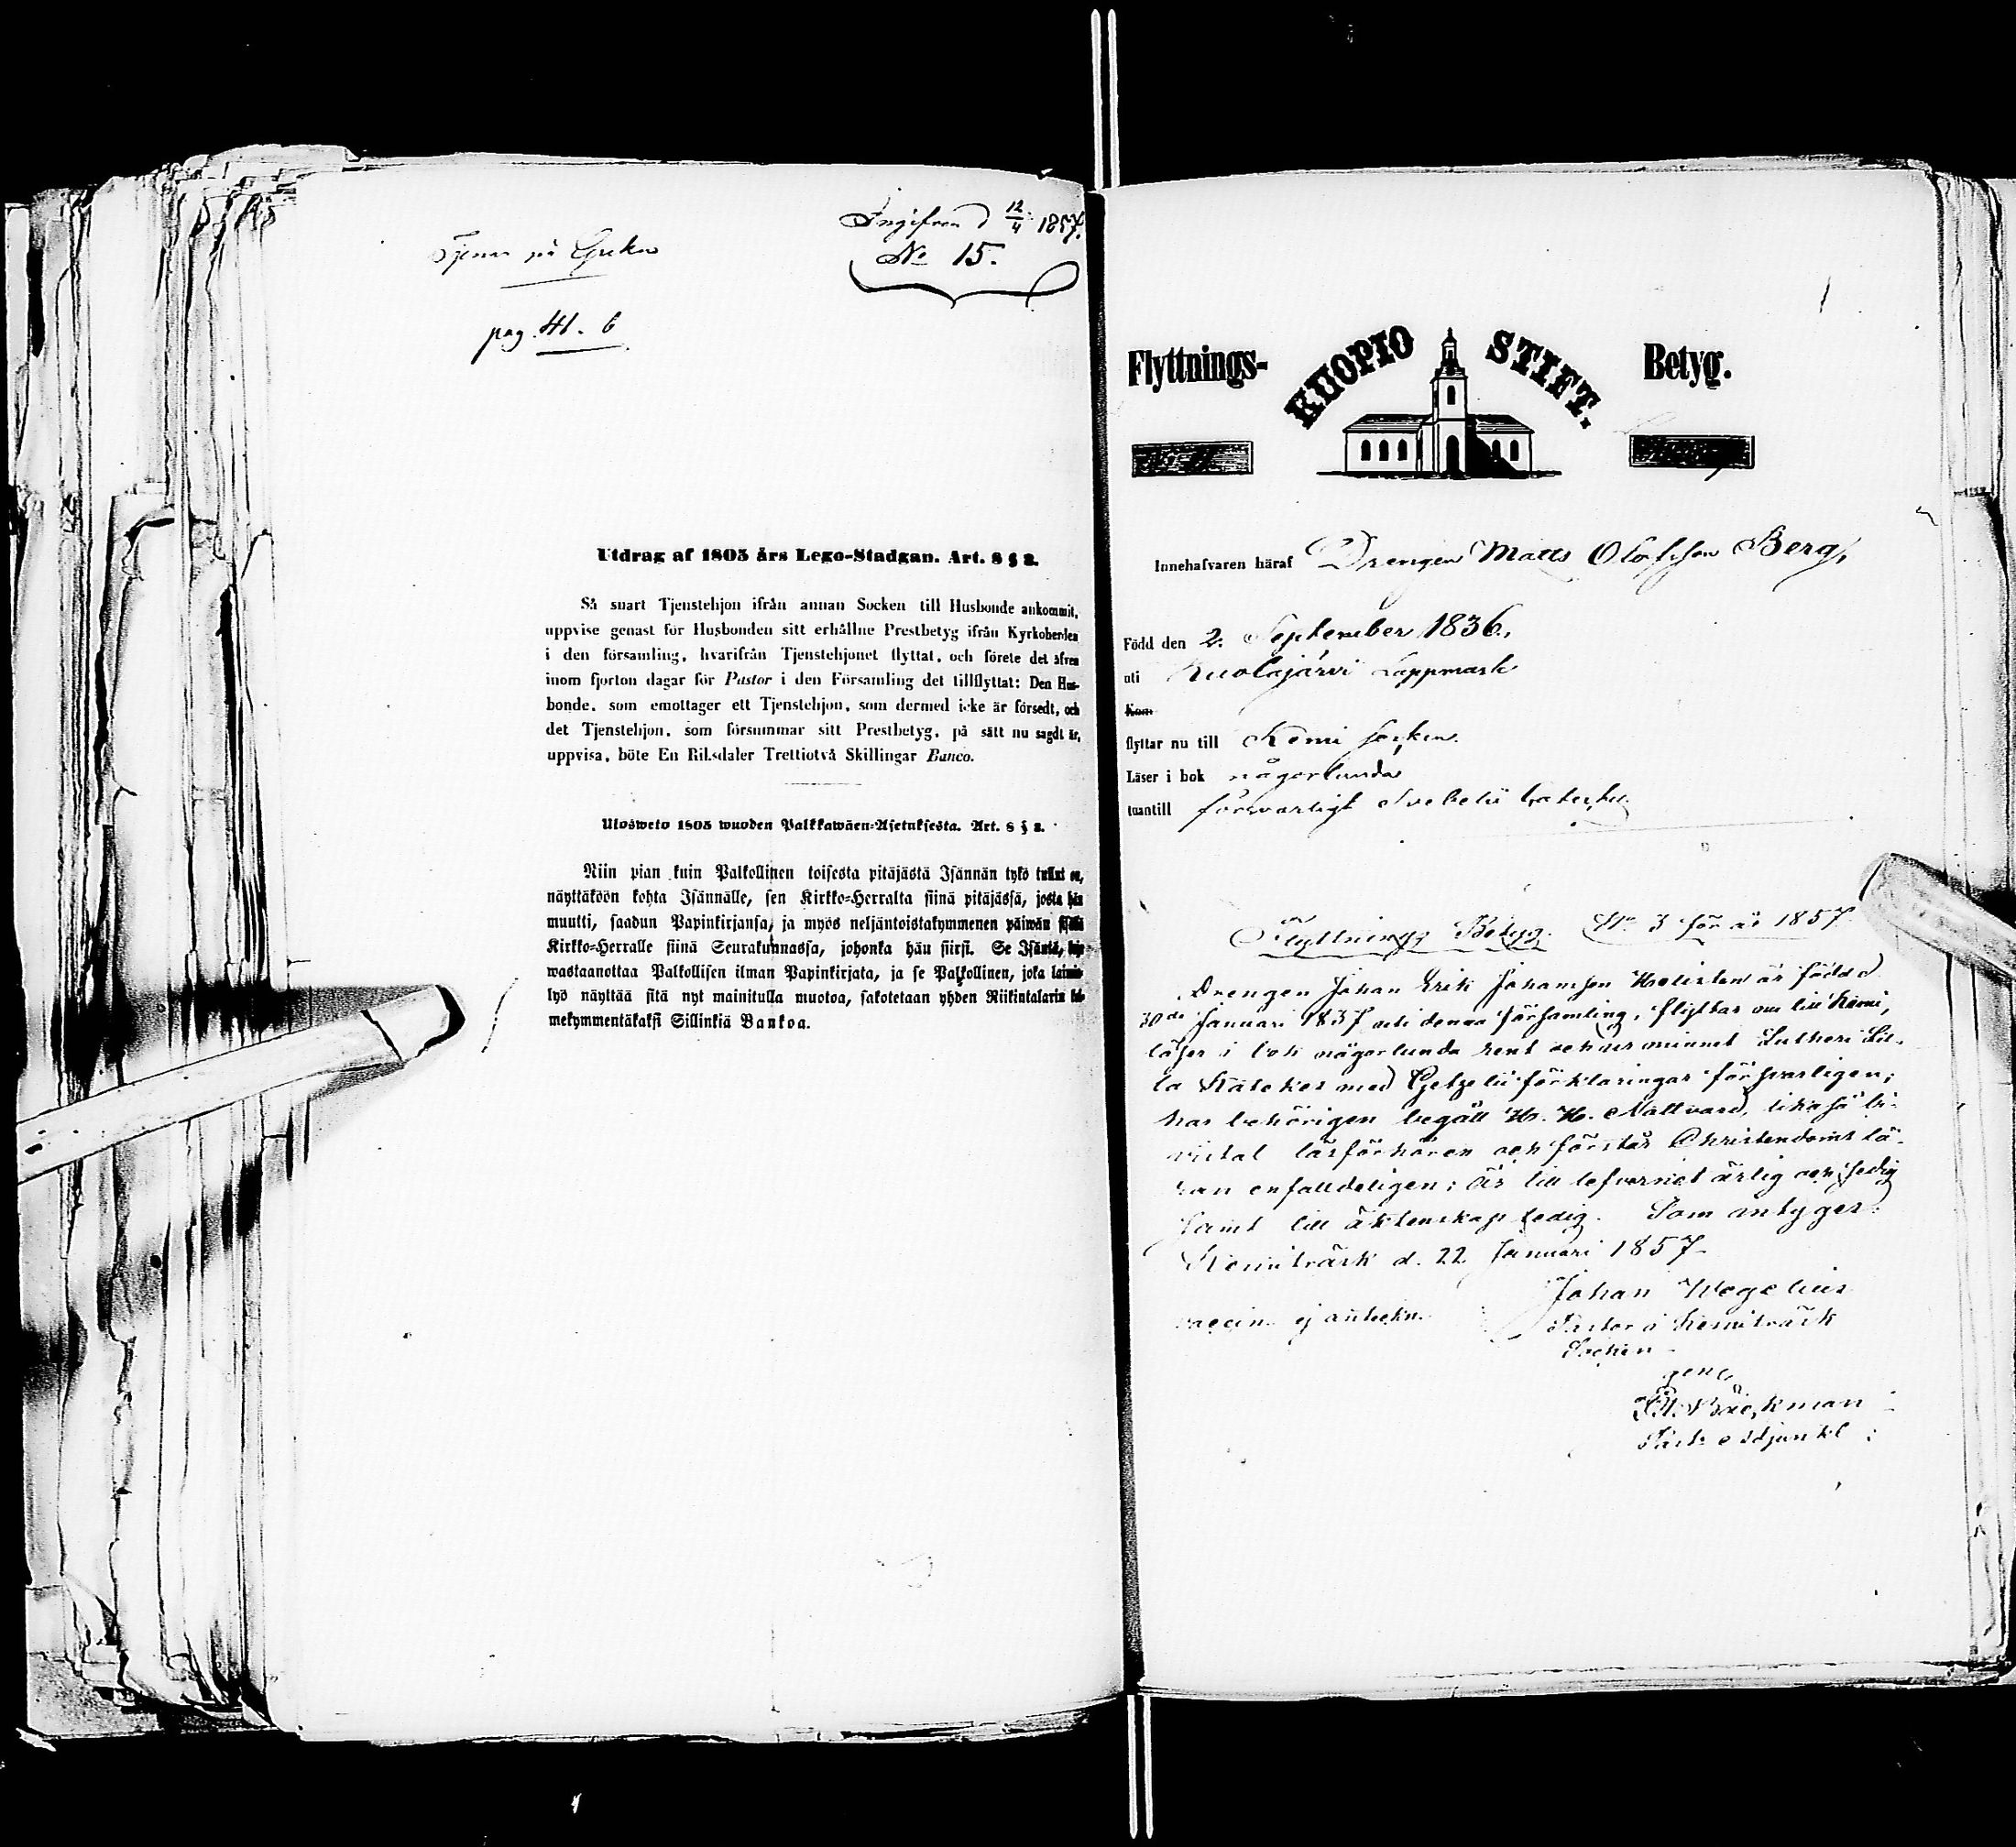 Ingifven d 12/4 1857.
No 15.
Tjenar på
pag. 41. 6
Utdrag af 1805 års Lego-Stadgan. Art. 8 § 2.
Så snart Tjenstehjon ifrån annan Socken till Husbonde ankommit,
uppvise genast för Husbonden sitt erhållne Prestbetyg ifrån Kyrkoherden
i den församling, hvarifrån Tjenstehjonet flyttat, och förete det äfven
inom fjorton dagar för Pastor i den Församling det tillflyttat: Den Hus-
bonde, som emottager ett Tjenstehjon, som dermed icke är försedt, och
det Tjenstehjon, som försummar sitt Prestbetyg, på sätt nu sagdt är,
uppvisa, böte En Riksdaler Trettiotvå Skillingar Banco.
Ulosweto 1805 wuoden Palkkawäen-Asetuksesta. Art. 8 § 2.
Niin pian kuin Palkollinen toisesta pitäjästä Isännän tykö tullut on,
näyttäköön kohta Isännälle, sen Kirkko-Herralta siinä pitäjässä, josta hän
muutti, saadun Papinkirjansa, ja myös neljäntoistakymmenen päiwän sisällä
Kirkko-Herralle siinä Seurakunnassa, johonka hän siirsi. Se Isäntä, joka
wastaanottaa Palkollisen ilman Papinkirjata, ja se Palkollinen, joka laimin-
lyö näyttää sitä nyt mainitulla muotoa, sakotetaan yhden Riikintalarin kol-
mekymmentäkaksi Sillinkiä Bankoa.
Flyttnings- KUOPIO STIFT. Betyg.
Innehafvaren häraf Drengen Matts Olofsson Berg,
Född den 2. September 1836.,
uti Kuolajärvi Lappmark
Kan
flyttar nu till Kemi socken.
Läser i bok någorlunda
utantill försvarligt Svebelii
Flyttnings Betyg. No 3 för år 1857.
Drengen Johan Erik Johansson är född d
30de Januari 1837 uti denna församling, flyttar nu till Kemi,
läser i bok någorlunda rent och ur minnet Lutheri Lil-
la Kateches med Getzelii förklaringar försvarligen;
har behörigen begått H. H. Nattvard, likaså bi-
vistat läsförhören och förstår Christendoms lä-
ran enfalldeligen; är till lefvernet ärlig och sedig
samt till äktenskap ledig. Som intygar.
Kemiträsk d. 22 Januari 1857.
Johan Wegelius
vaccin. ej anteckn. Pastor i Kemiträsk
Socken
gen
Bäckman
Past. Adjunkt